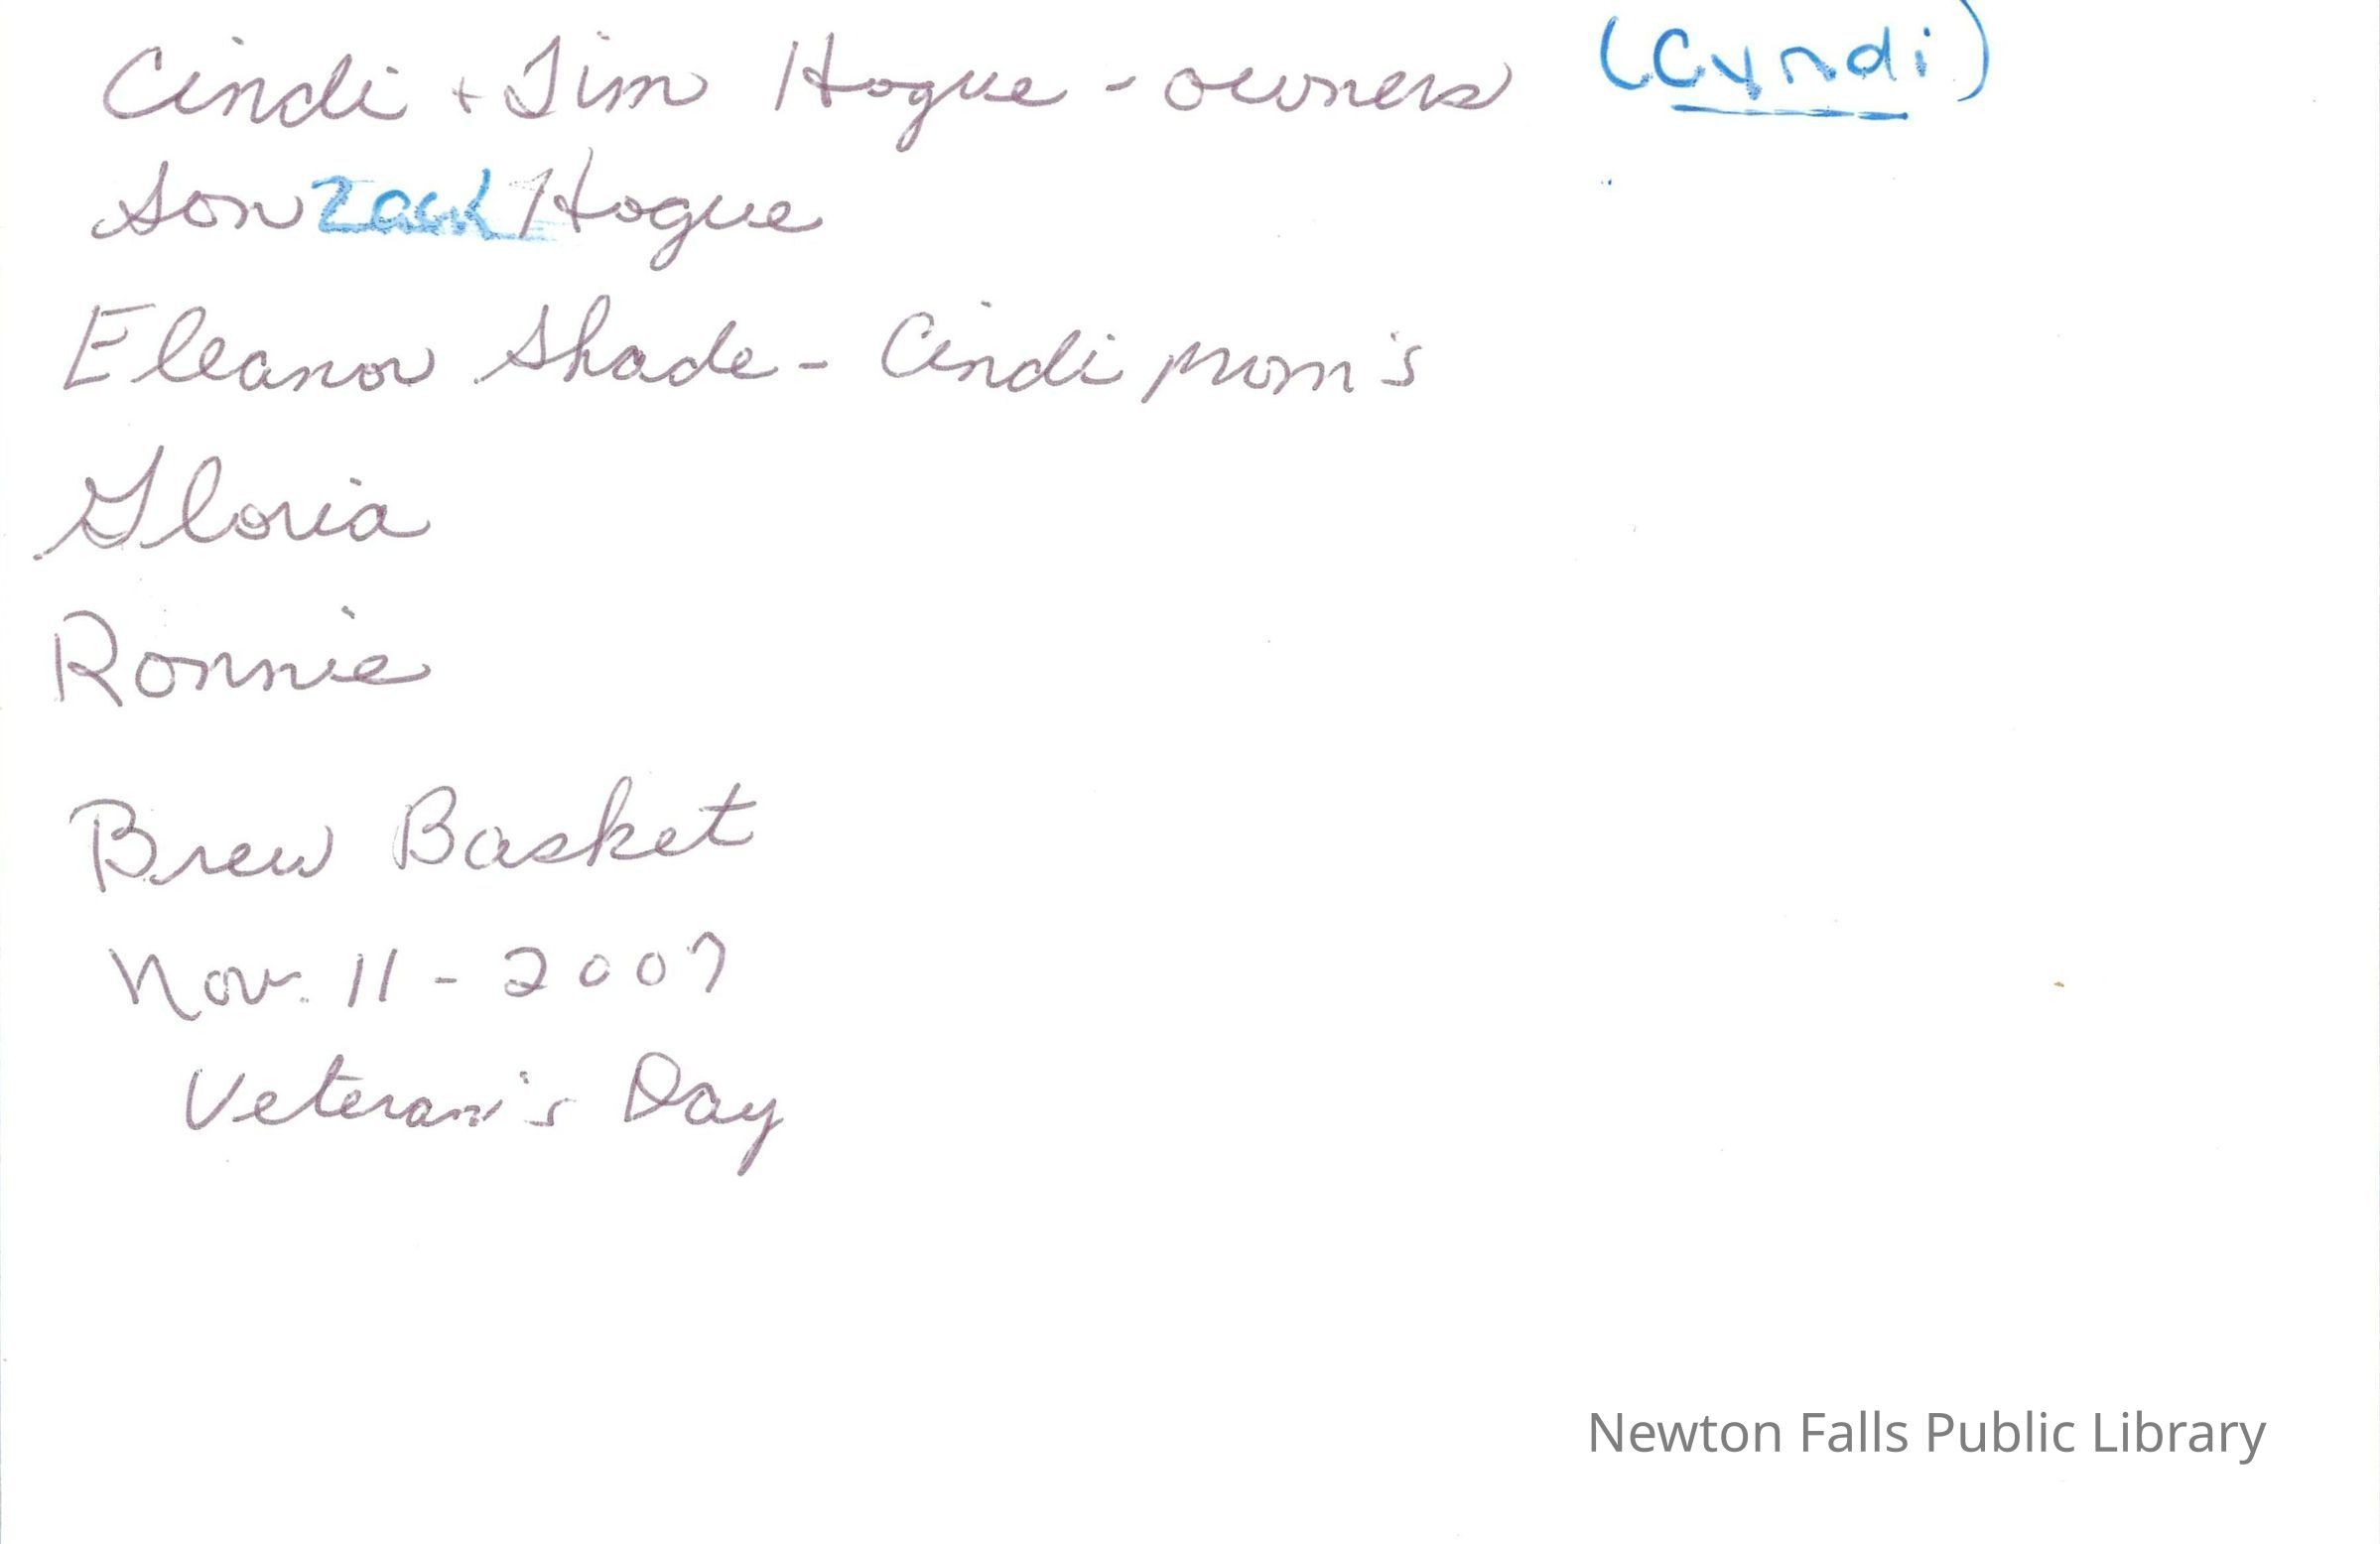 Cindi + Jim Hogue - owners (Cyndi)
Son Zack Hogue
Eleanor Shade - Cindi mom's
Gloria
Ronnie
Brew Basket
Nov. 11 - 2007
Veteran's Day
Newton Falls Public Library